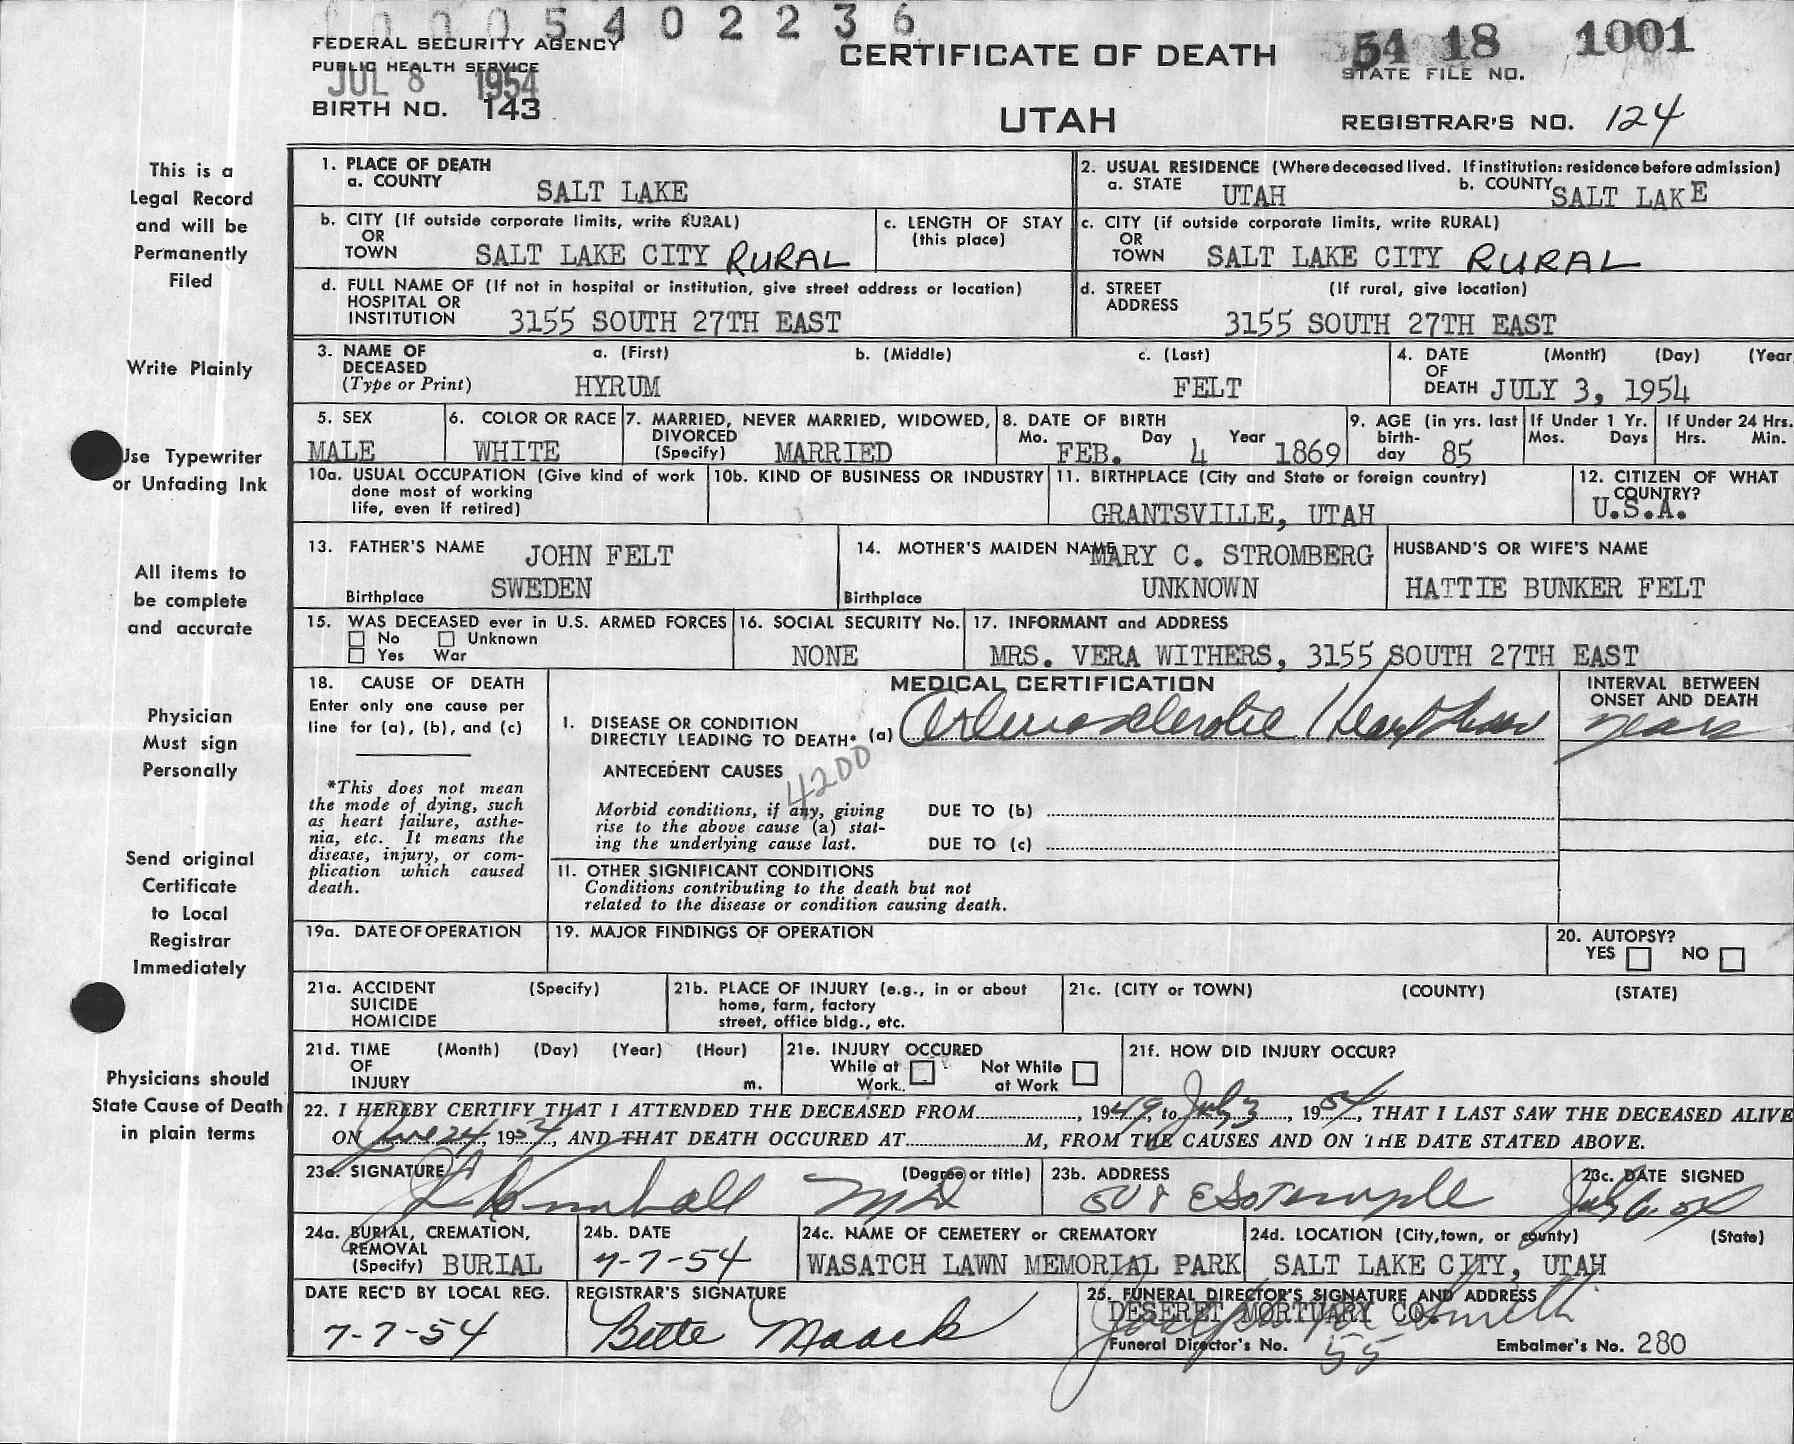 0000540 2 2 3 6
FEDERAL SECURITY AGENCY
PUBLIC HEALTH SERVICE
JUL 8 1954
BIRTH NO. 143
CERTIFICATE OF DEATH
UTAH
54 18 1001
STATE FILE NO.
REGISTRAR'S NO. 124
This is a
Legal Record
and will be
Permanently
Filed
Write Plainly
Use Typewriter
or Unfading Ink
All items to
be complete
and accurate
Physician
Must sign
Personally
Send original
Certificate
to Local
Registrar
Immediately
Physicians should
State Cause of Death
in plain terms
1. PLACE OF DEATH
a. COUNTY
SALT LAKE
2. USUAL RESIDENCE (Where deceased lived. If institution: residence before admission)
a. STATE UTAH b. COUNTY SALT LAKE
b. CITY (If outside corporate limits, write RURAL)
OR
TOWN SALT LAKE CITY RURAL
c. LENGTH OF STAY
(this place)
c. CITY (if outside corporate limits, write RURAL)
OR
TOWN SALT LAKE CITY RURAL
d. FULL NAME OF (If not in hospital or institution, give street address or location)
HOSPITAL OR
INSTITUTION 3155 SOUTH 27TH EAST
d. STREET (If rural, give location)
ADDRESS
3155 SOUTH 27TH EAST
3. NAME OF a. (First) b. (Middle) c. (Last)
DECEASED
(Type or Print) HYRUM FELT
4. DATE (Month) (Day) (Year
OF
DEATH JULY 3, 1954
5. SEX
MALE
6. COLOR OR RACE
WHITE
7. MARRIED, NEVER MARRIED, WIDOWED,
DIVORCED
(Specify) MARRIED
8. DATE OF BIRTH
Mo. Day Year
FEB. 4 1869
9. AGE (in yrs. last
birth-
day 85
If Under 1 Yr.
Mos. Days
If Under 24 Hrs.
Hrs. Min.
10a. USUAL OCCUPATION (Give kind of work
done most of working
life, even if retired)
10b. KIND OF BUSINESS OR INDUSTRY
11. BIRTHPLACE (City and State or foreign country)
GRANTSVILLE, UTAH
12. CITIZEN OF WHAT
COUNTRY?
U.S.A.
13. FATHER'S NAME JOHN FELT
Birthplace SWEDEN
14. MOTHER'S MAIDEN NAME MARY C. STROMBERG
Birthplace UNKNOWN
HUSBAND'S OR WIFE'S NAME
HATTIE BUNKER FELT
15. WAS DECEASED ever in U.S. ARMED FORCES
No Unknown
Yes War
16. SOCIAL SECURITY No.
NONE
17. INFORMANT and ADDRESS
MRS. VERA WITHERS, 3155 SOUTH 27TH EAST
18. CAUSE OF DEATH
Enter only one cause per
line for (a), (b), and (c)
*This does not mean
the mode of dying, such
as heart failure, asthe-
nia, etc. It means the
disease, injury, or com-
plication which caused
death.
MEDICAL CERTIFICATION
I. DISEASE OR CONDITION
DIRECTLY LEADING TO DEATH* (a) Arteriosclerotic Heart
INTERVAL BETWEEN
ONSET AND DEATH
years
ANTECEDENT CAUSES
4200
Morbid conditions, if any, giving
rise to the above cause (a) stat-
ing the underlying cause last.
DUE TO (b)
DUE TO (c)
II. OTHER SIGNIFICANT CONDITIONS
Conditions contributing to the death but not
related to the disease or condition causing death.
19a. DATE OF OPERATION
19. MAJOR FINDINGS OF OPERATION
20. AUTOPSY?
YES NO
21a. ACCIDENT (Specify)
SUICIDE
HOMICIDE
21b. PLACE OF INJURY (e.g., in or about
home, farm, factory
street, office bldg., etc.
21c. (CITY or TOWN) (COUNTY) (STATE)
21d. TIME (Month) (Day) (Year) (Hour)
OF
INJURY m.
21e. INJURY OCCURED
While at Not While
Work.. at Work
21f. HOW DID INJURY OCCUR?
22. I HEREBY CERTIFY THAT I ATTENDED THE DECEASED FROM, 1949, to July 3, 1954, THAT I LAST SAW THE DECEASED ALIVE
ON June 24, 1954, AND THAT DEATH OCCURED AT M, FROM THE CAUSES AND ON THE DATE STATED ABOVE.
23a. SIGNATURE (Degree or title)
Kimball MD
23b. ADDRESS
508 E So Temple
23c. DATE SIGNED
July 6. 54
24a. BURIAL, CREMATION,
REMOVAL
(Specify) BURIAL
24b. DATE
7-7-54
24c. NAME OF CEMETERY or CREMATORY
WASATCH LAWN MEMORIAL PARK
24d. LOCATION (City, town, or county) (State)
SALT LAKE CITY, UTAH
DATE REC'D BY LOCAL REG.
7-7-54
REGISTRAR'S SIGNATURE
Bette Maack
25. FUNERAL DIRECTOR'S SIGNATURE AND ADDRESS
DESERET MORTUARY CO.
Smith
Funeral Director's No. 55 Embalmer's No. 280